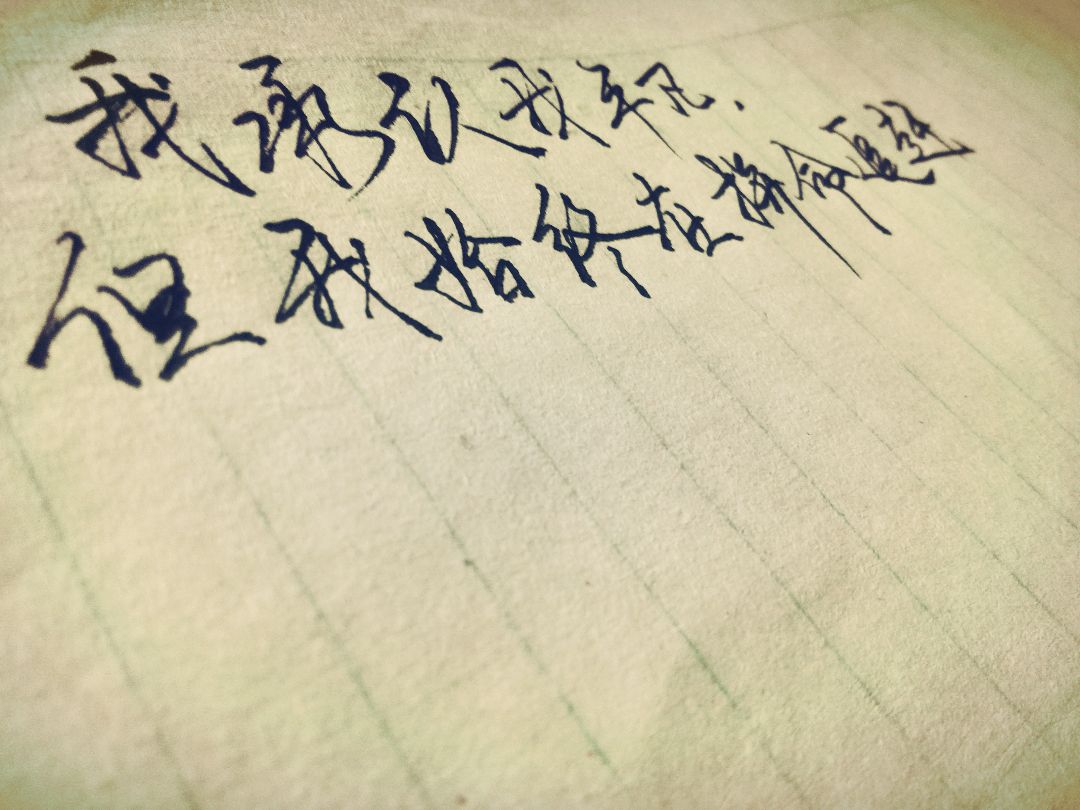 我承认我平凡.
但我始终在拼命逼赶